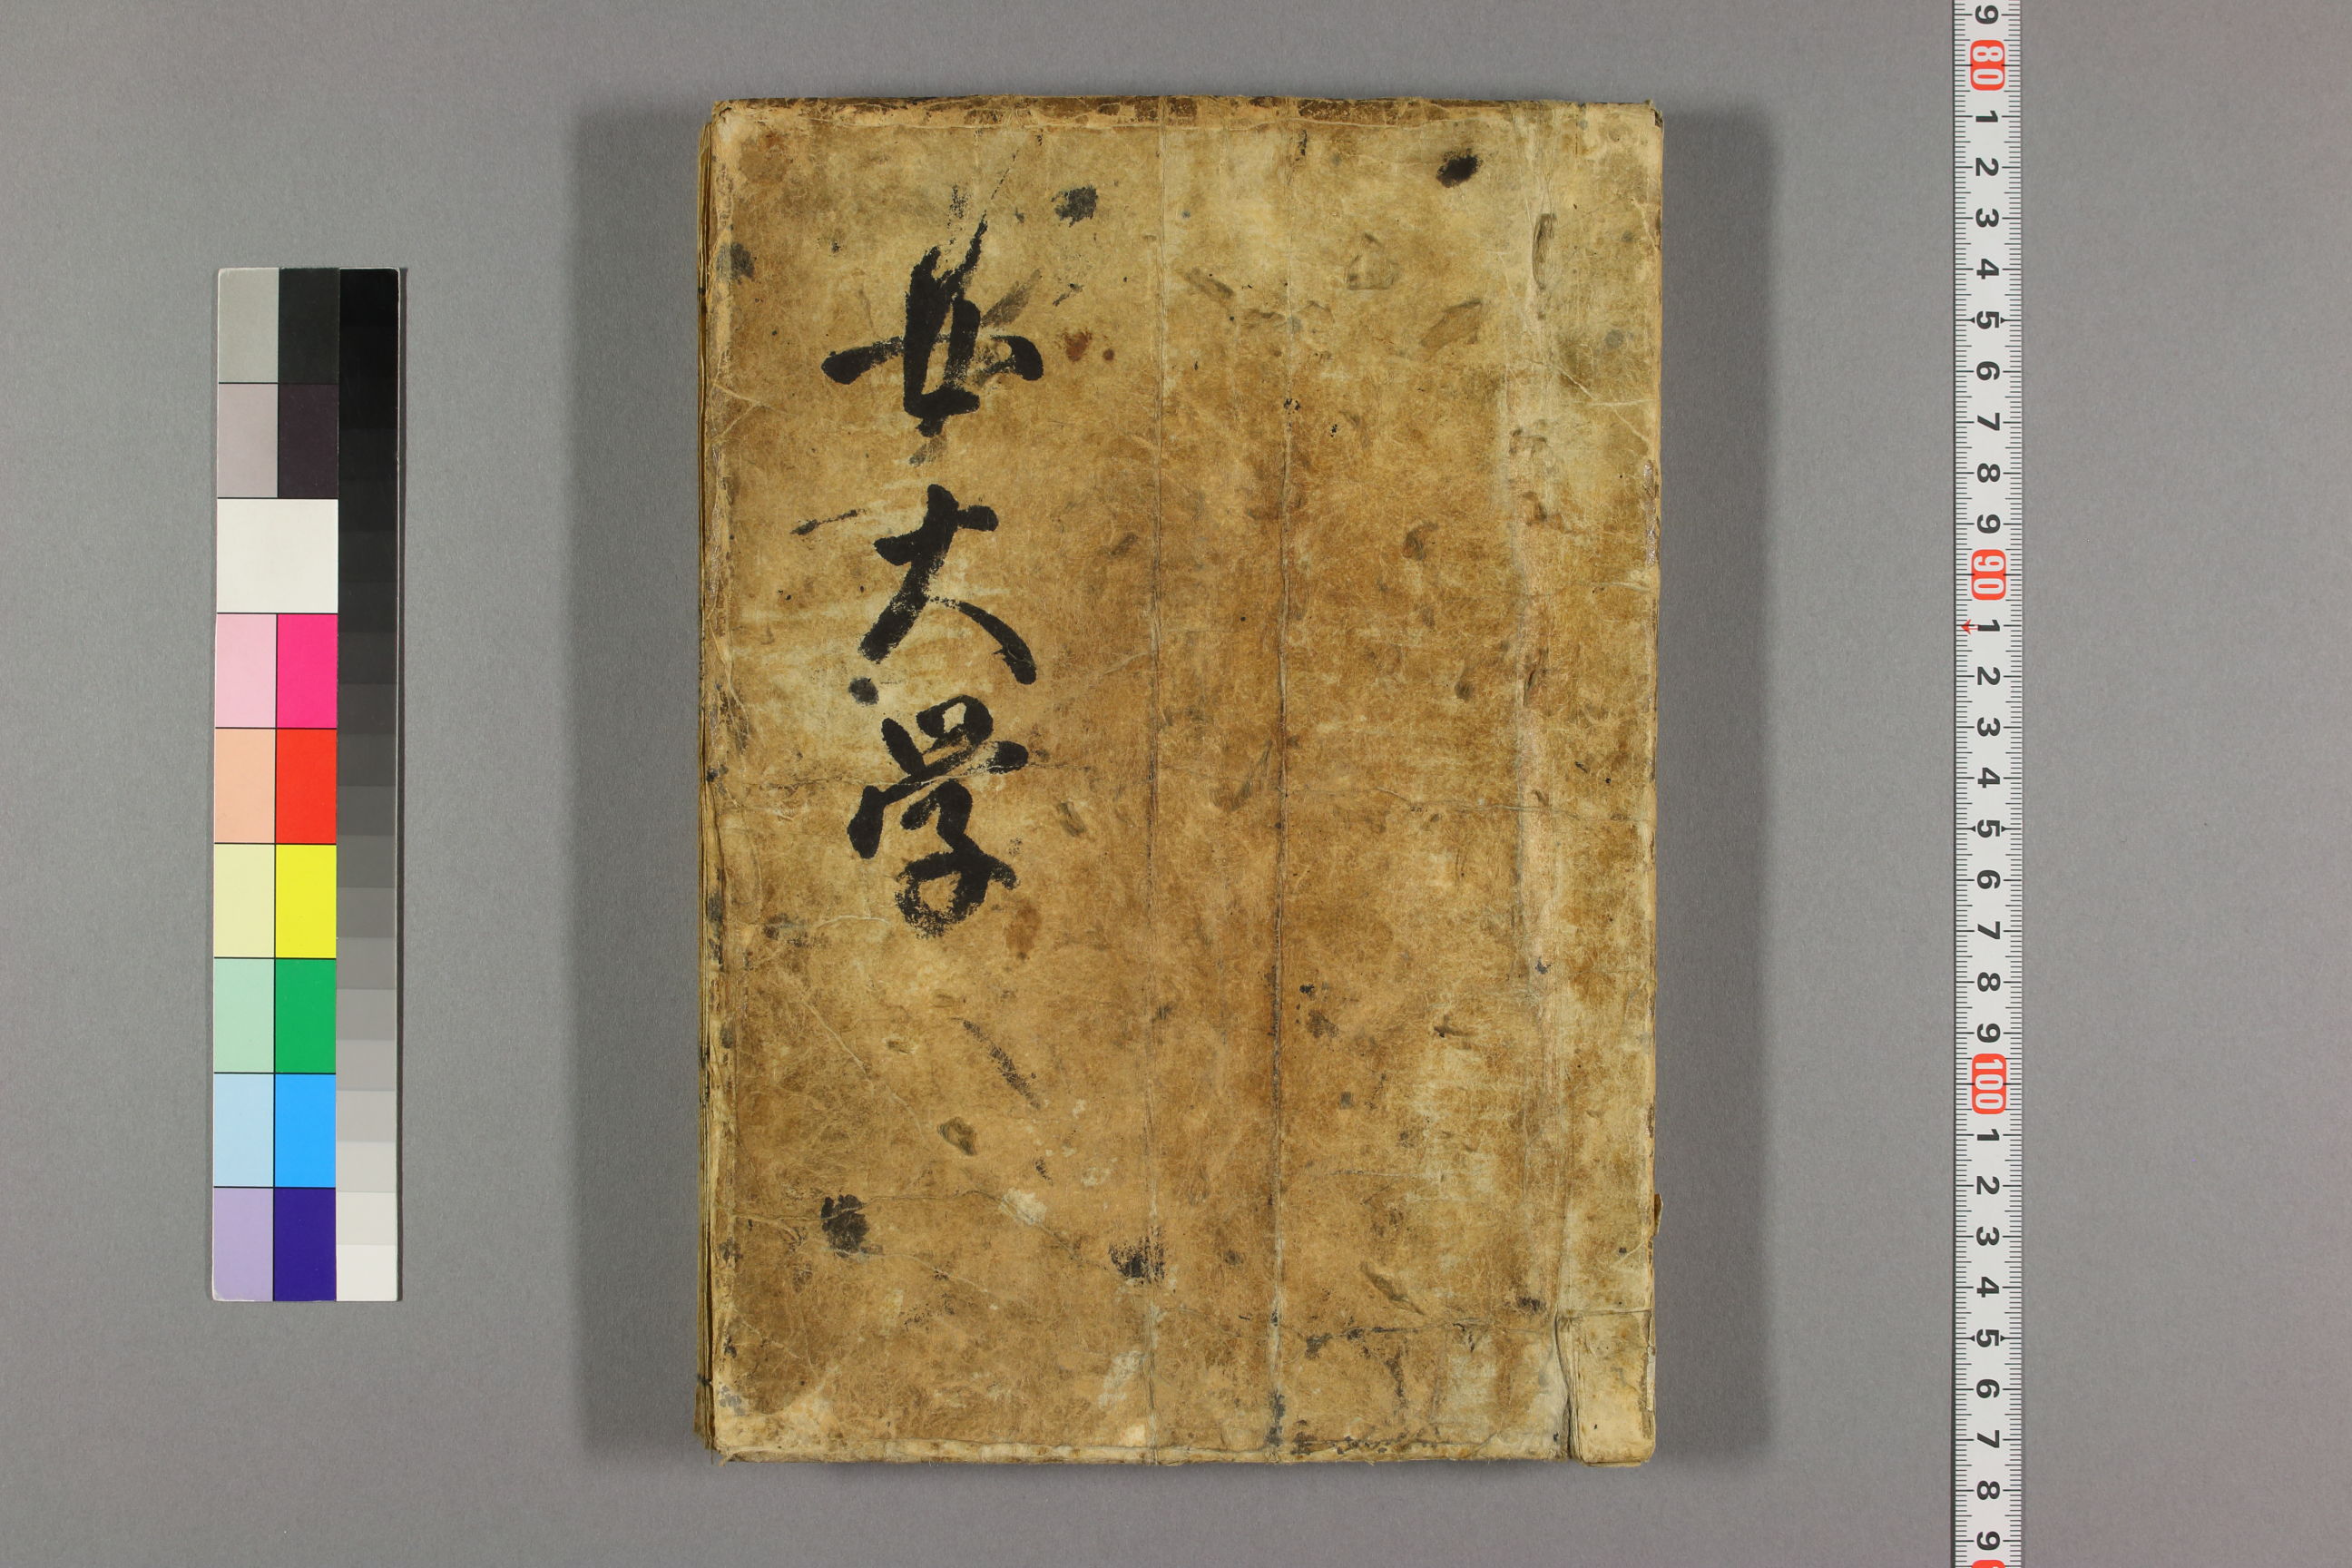 女大学
9
80
1
2
3
4
5
6
7
8
9
90
1
2
3
4
5
6
7
8
9
100
1
2
3
4
5
6
7
8
9